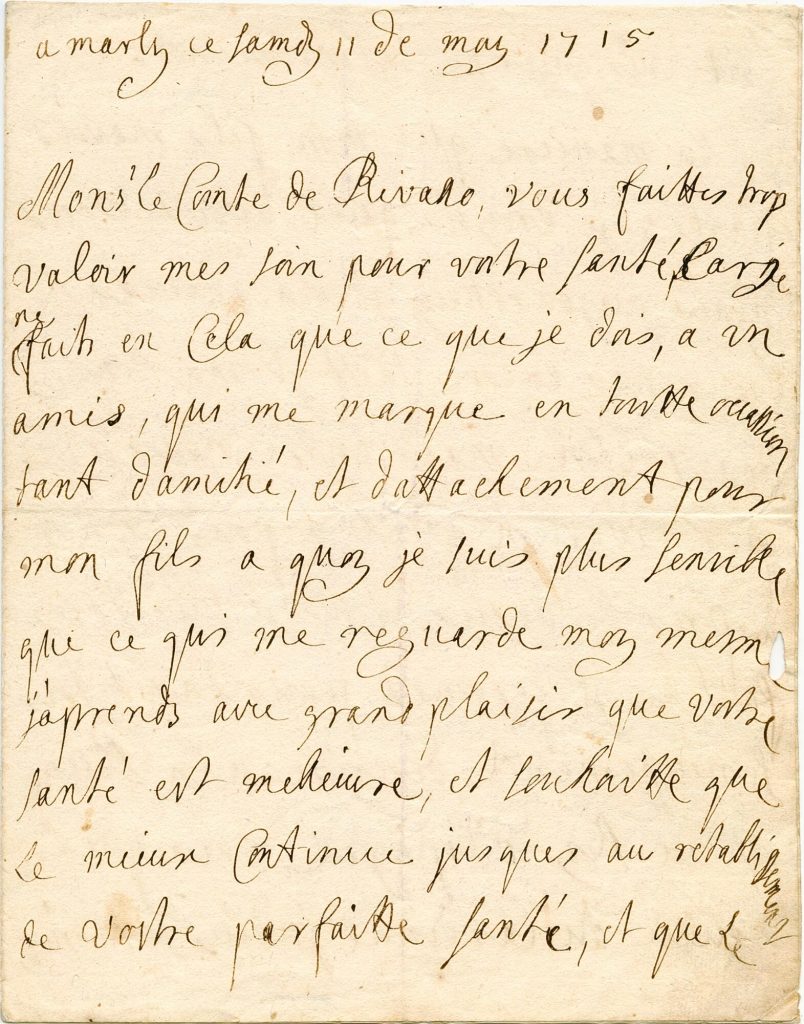 a marly ce samdy 11 de may 1715
Monsr le Comte de Rivaso, vous faittes trop
valoir mes soin pour vostre santé, Car je
ne faits en Cela que ce que je dois, a un
amis, qui me marque en toutte occassion
tant damitié, et dattachement pour
mon fils a quoy je suis plus sensible
que ce qui me reguarde moy mesme
j'aprends avec grand plaisir que vostre
santé est melieure, et souhaitte que
le mieux Continue jusques au retablissement
de vostre parfaitte santé, et que le